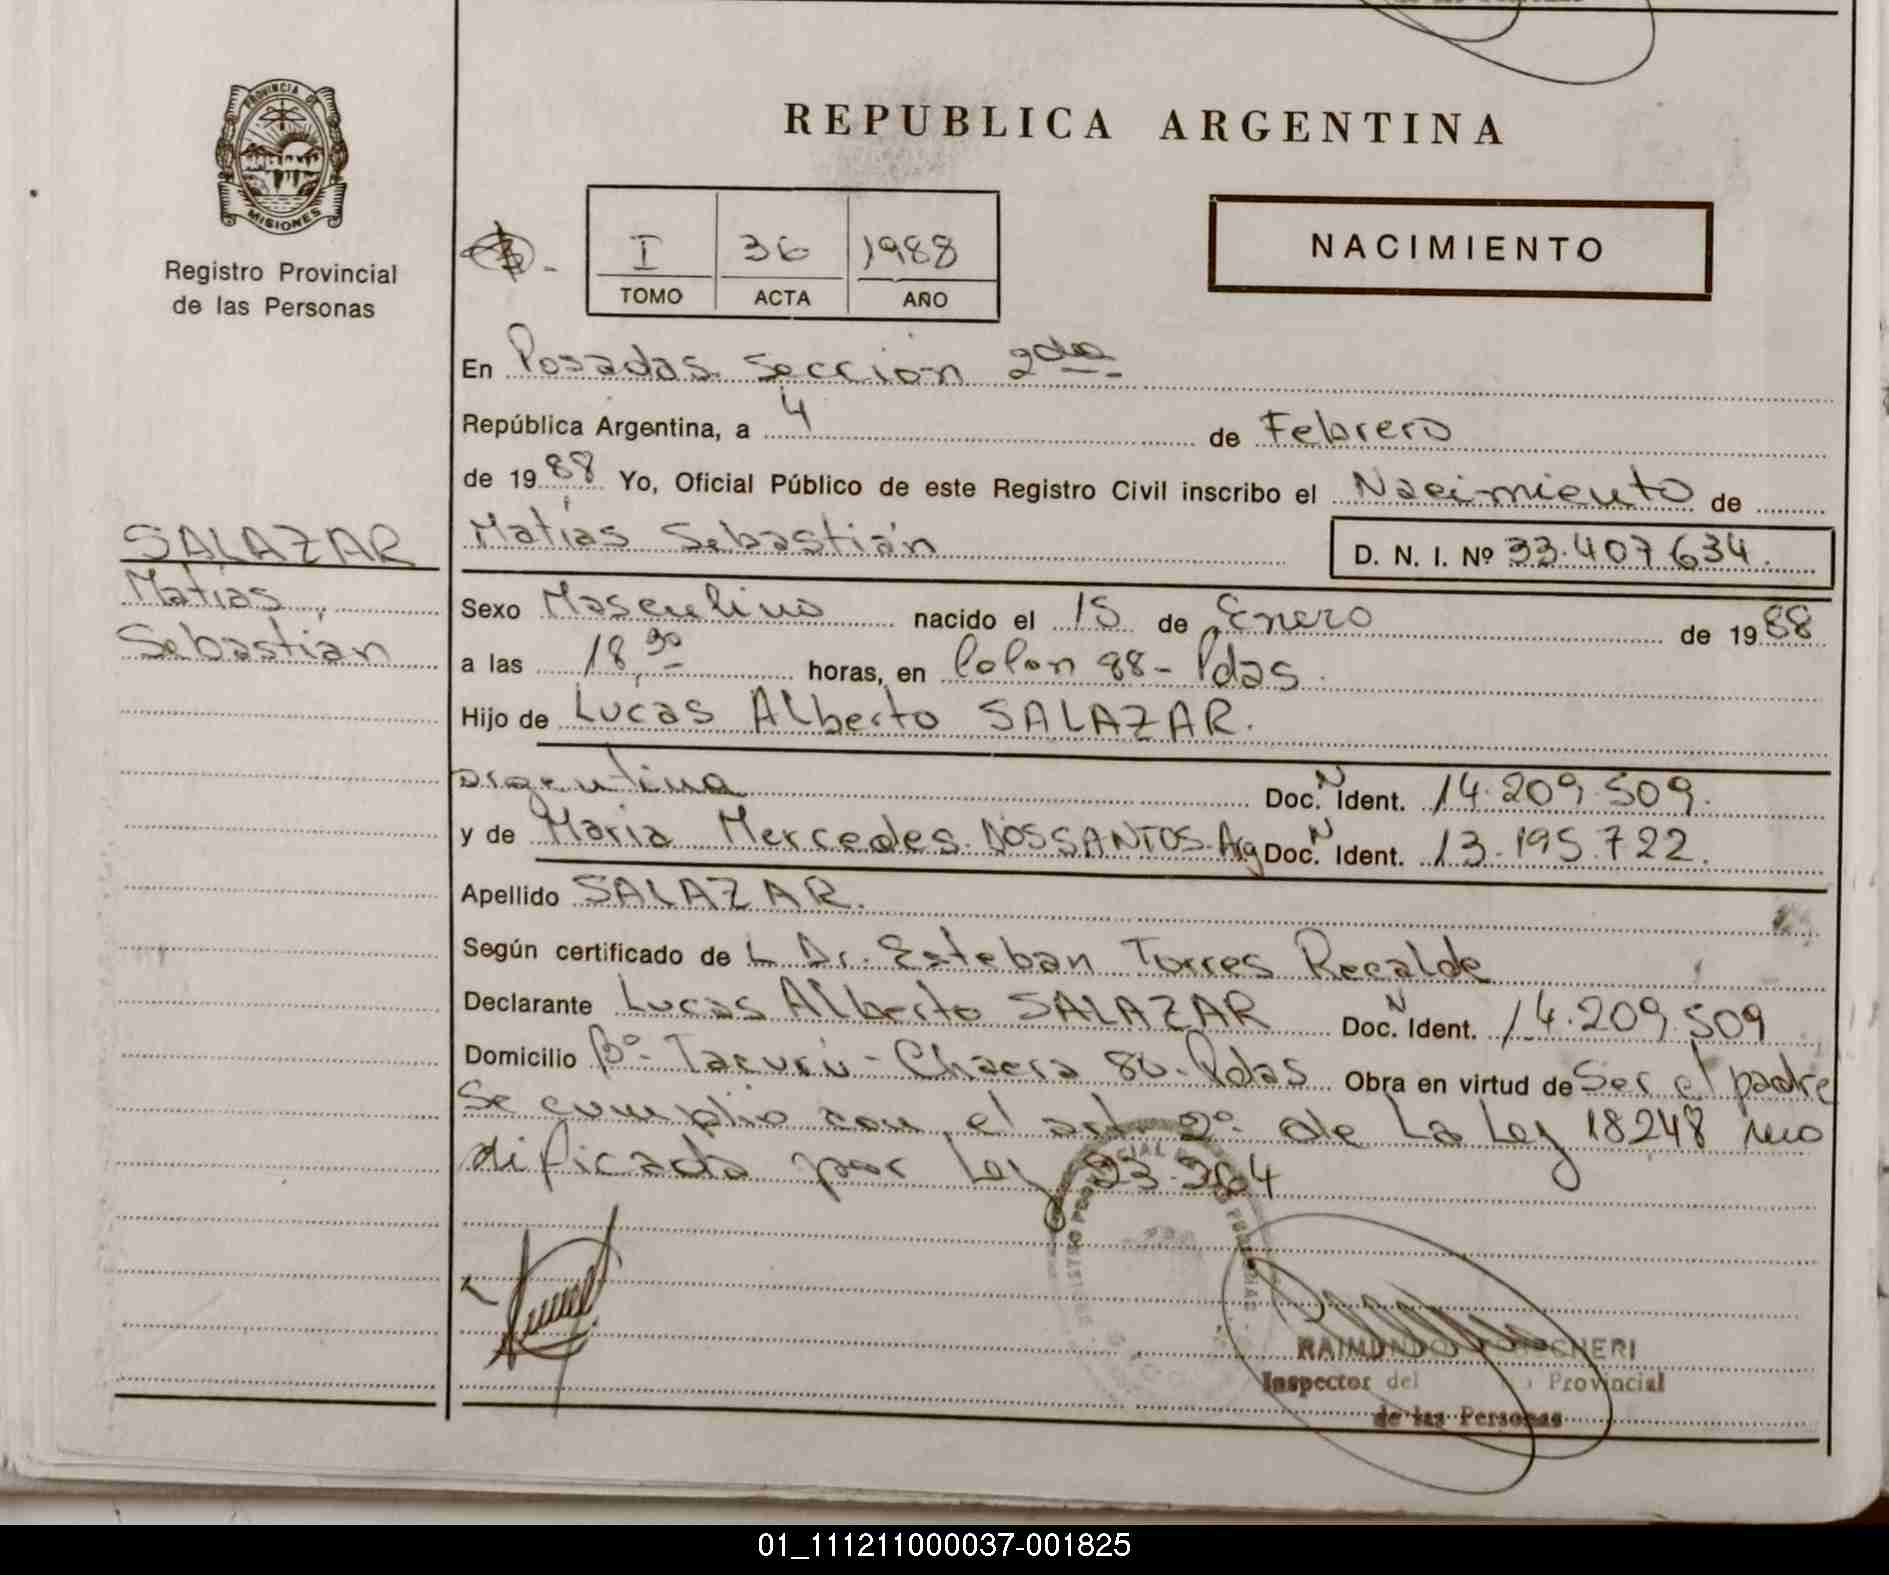 REPUBLICA ARGENTINA
PROVINCIA DE
MISIONES
Registro Provincial
de las Personas
I 36 1988
TOMO ACTA AÑO
NACIMIENTO
En Posadas Sección 2da
República Argentina, a 4 de Febrero
de 1988 Yo, Oficial Público de este Registro Civil inscribo el Nacimiento de
Matías Sebastián D. N. I. Nº 33.407.634.
SALAZAR
Matías
Sebastián
Sexo Masculino nacido el 15 de Enero de 1988
a las 18,30 horas, en Colon 98 - Pdas.
Hijo de Lucas Alberto SALAZAR.
argentina Doc. N Ident. 14.209.509.
y de Maria Mercedes DOSSANTOS. Arg Doc. N Ident. 13.195.722.
Apellido SALAZAR.
Según certificado de L Dr. Esteban Torres Recalde
Declarante Lucas Alberto SALAZAR Doc. N Ident. 14.209.509
Domicilio Bº. Tacurú - Chacra 80. Pdas Obra en virtud de Ser el padre
Se cumplio con el art. 2º de La Ley 18248 mo
dificada por Ley 23.264
Inspector del Provincial
de las Personas
01_111211000037-001825